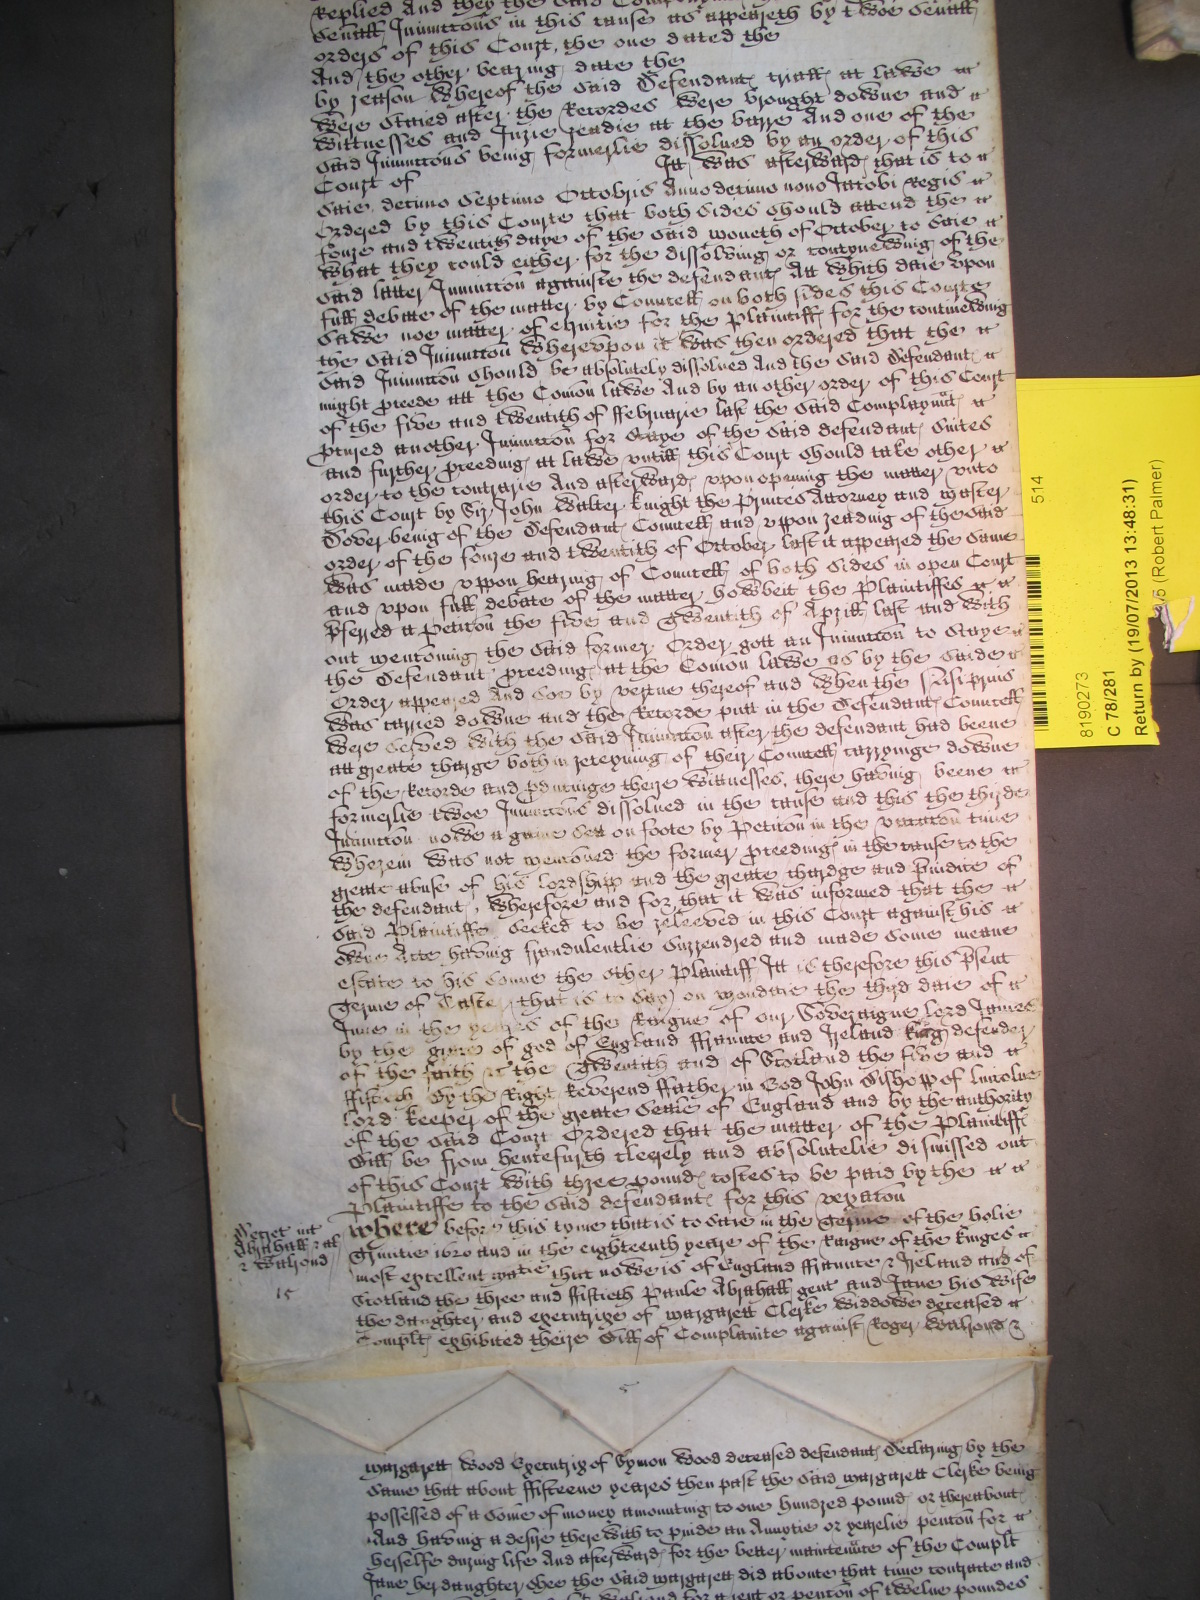 Replied And they the said
severall Iniunccons in this cause as appeareth by twoe severall
orders of this Court, the one dated the
And the other bearing date the
by reason whereof the said Defendantes triall at lawe
were staied after the Recordes were brought downe and
wittnesses and Iurie readie at the barre And one of the
said Iniunccons being formerlie dissolued by an order of this
Court of It was afterwardes that is to
saie decimo septimo Octobris Anno decimo nono Iacobi Regis
Ordered by this Courte that both sides should attend the
foure and twentith daye of the said moneth of October to saie
what they could either for the dissolving or contynewing of the
said latter Iniunccon againste the defendantes Att which daie vpon
full debate of the matter by Councell on both sides this Courte
sawe noe matter of equitie for the Plaintiff for the continewing
the said Iniunccon wherevpon it was then ordered that the
said Iniunccon should be absolutely dissolued And the said Defendantes
might pceede att the Comon lawe And by an other order of this Court
of the five and twentith of ffebruarie last the said Complaynant
pcured another Iniunccon for staye of the said defendantes suites
and further pceeding at lawe vntill this Court should take other
order to the contrarie And afterwardes vpon opening the matter vnto
this Court by Sir John Walter knight the Princes Attorney and master
Dover being of the Defendantes Councell and vppon reading of the said
order of the foure and twentith of October last it appeared the same
was made vppon hearing of Councell of both sides in open Court
and vpon full debate of the matter howbeit the Plaintiffes
pferred a Peticon the five and Twentith of Aprill last and with
out mencioning the said former Order gott an Iniunccon to staye
the Defendantes pceeding at the Comon lawe as by the saide
Order appeared And soe by vertue thereof and when the Nisi prius
was carried downe and the Recorde putt in the Defendantes Councell
were served with the said Iniunccon after the defendant had beene
att greate charge both in reteyning of their Councell carryinge downe
of the Recorde and pducinge theire wittnesses, there having beene
formerlie twoe Iniunccons dissolued in the cause and this the thirde
Iniunccon nowe againe sett on foote by Peticon in the vacacon time
wherein was not mencioned the former pceeding in the cause to the
greate abuse of his lordshipp and the greate chardge and piudice of
the defendantes, wherefore and for that it was informed that the
said Plaintiffe seeked to be releeved in this Court against his
owne Acte having fraudulentlie surrendred and made some meane
estate to his sonne the other Plaintiff It is therefore this psent
Terme of Easter (that is to say) on mondaie the third daie of
June in the yeares of the Raigne of our Soveraigne lord James
by the grace of god of England ffraunce and Ireland king defender
of the faith &c the Twentith and of Scotland the five and
fiftieth By the Right Reverend ffather in God John Bishopp of Lincolne
lord keeper of the greate Seale of England and by the authority
of the said Court Ordered that the matter of the Plaintiffes
Bill be from hencefurth cleerely and absolutelie dismissed out
of this Court with three poundes costes to be paid by the
Plaintiffe to the said defendantes for this vexacon
Where before this tyme that is to saie in the Terme of the holie
Trinitie 1620 and in the eighteenth yeare of the Raigne of the Kinges
most excellent matie that nowe is of England ffraunce & Ireland and of
Scotland the three and fiftieth Paule Abrahall gent and Jane his wife
the daughter and executrixe of margarett Clerke widdowe deceased
Complts exhibited theire Bill of Complainte against Roger Walrond &
int
Abrahall & al
& Walrond
15
5
margarett Wood Executrix of Symon Wood deceased defendantes Declaring by the
same that about ffifteene yeares then past the said margarett Clerke being
possessed of a some of money amounting to one hundred poundes or thereabout
And having a desire therewith to pvide an Annuytie or yearelie pencon for
herselfe during life And afterwardes for the better maintenance of the Complt
Jane her daughter shee the said margarett did aboute that time contracte and
Walrond for a rent or pencon of twelve poundes
8190273
514
C 78/281
Return by (19/07/2013 13:48:31)
(Robert Palmer)